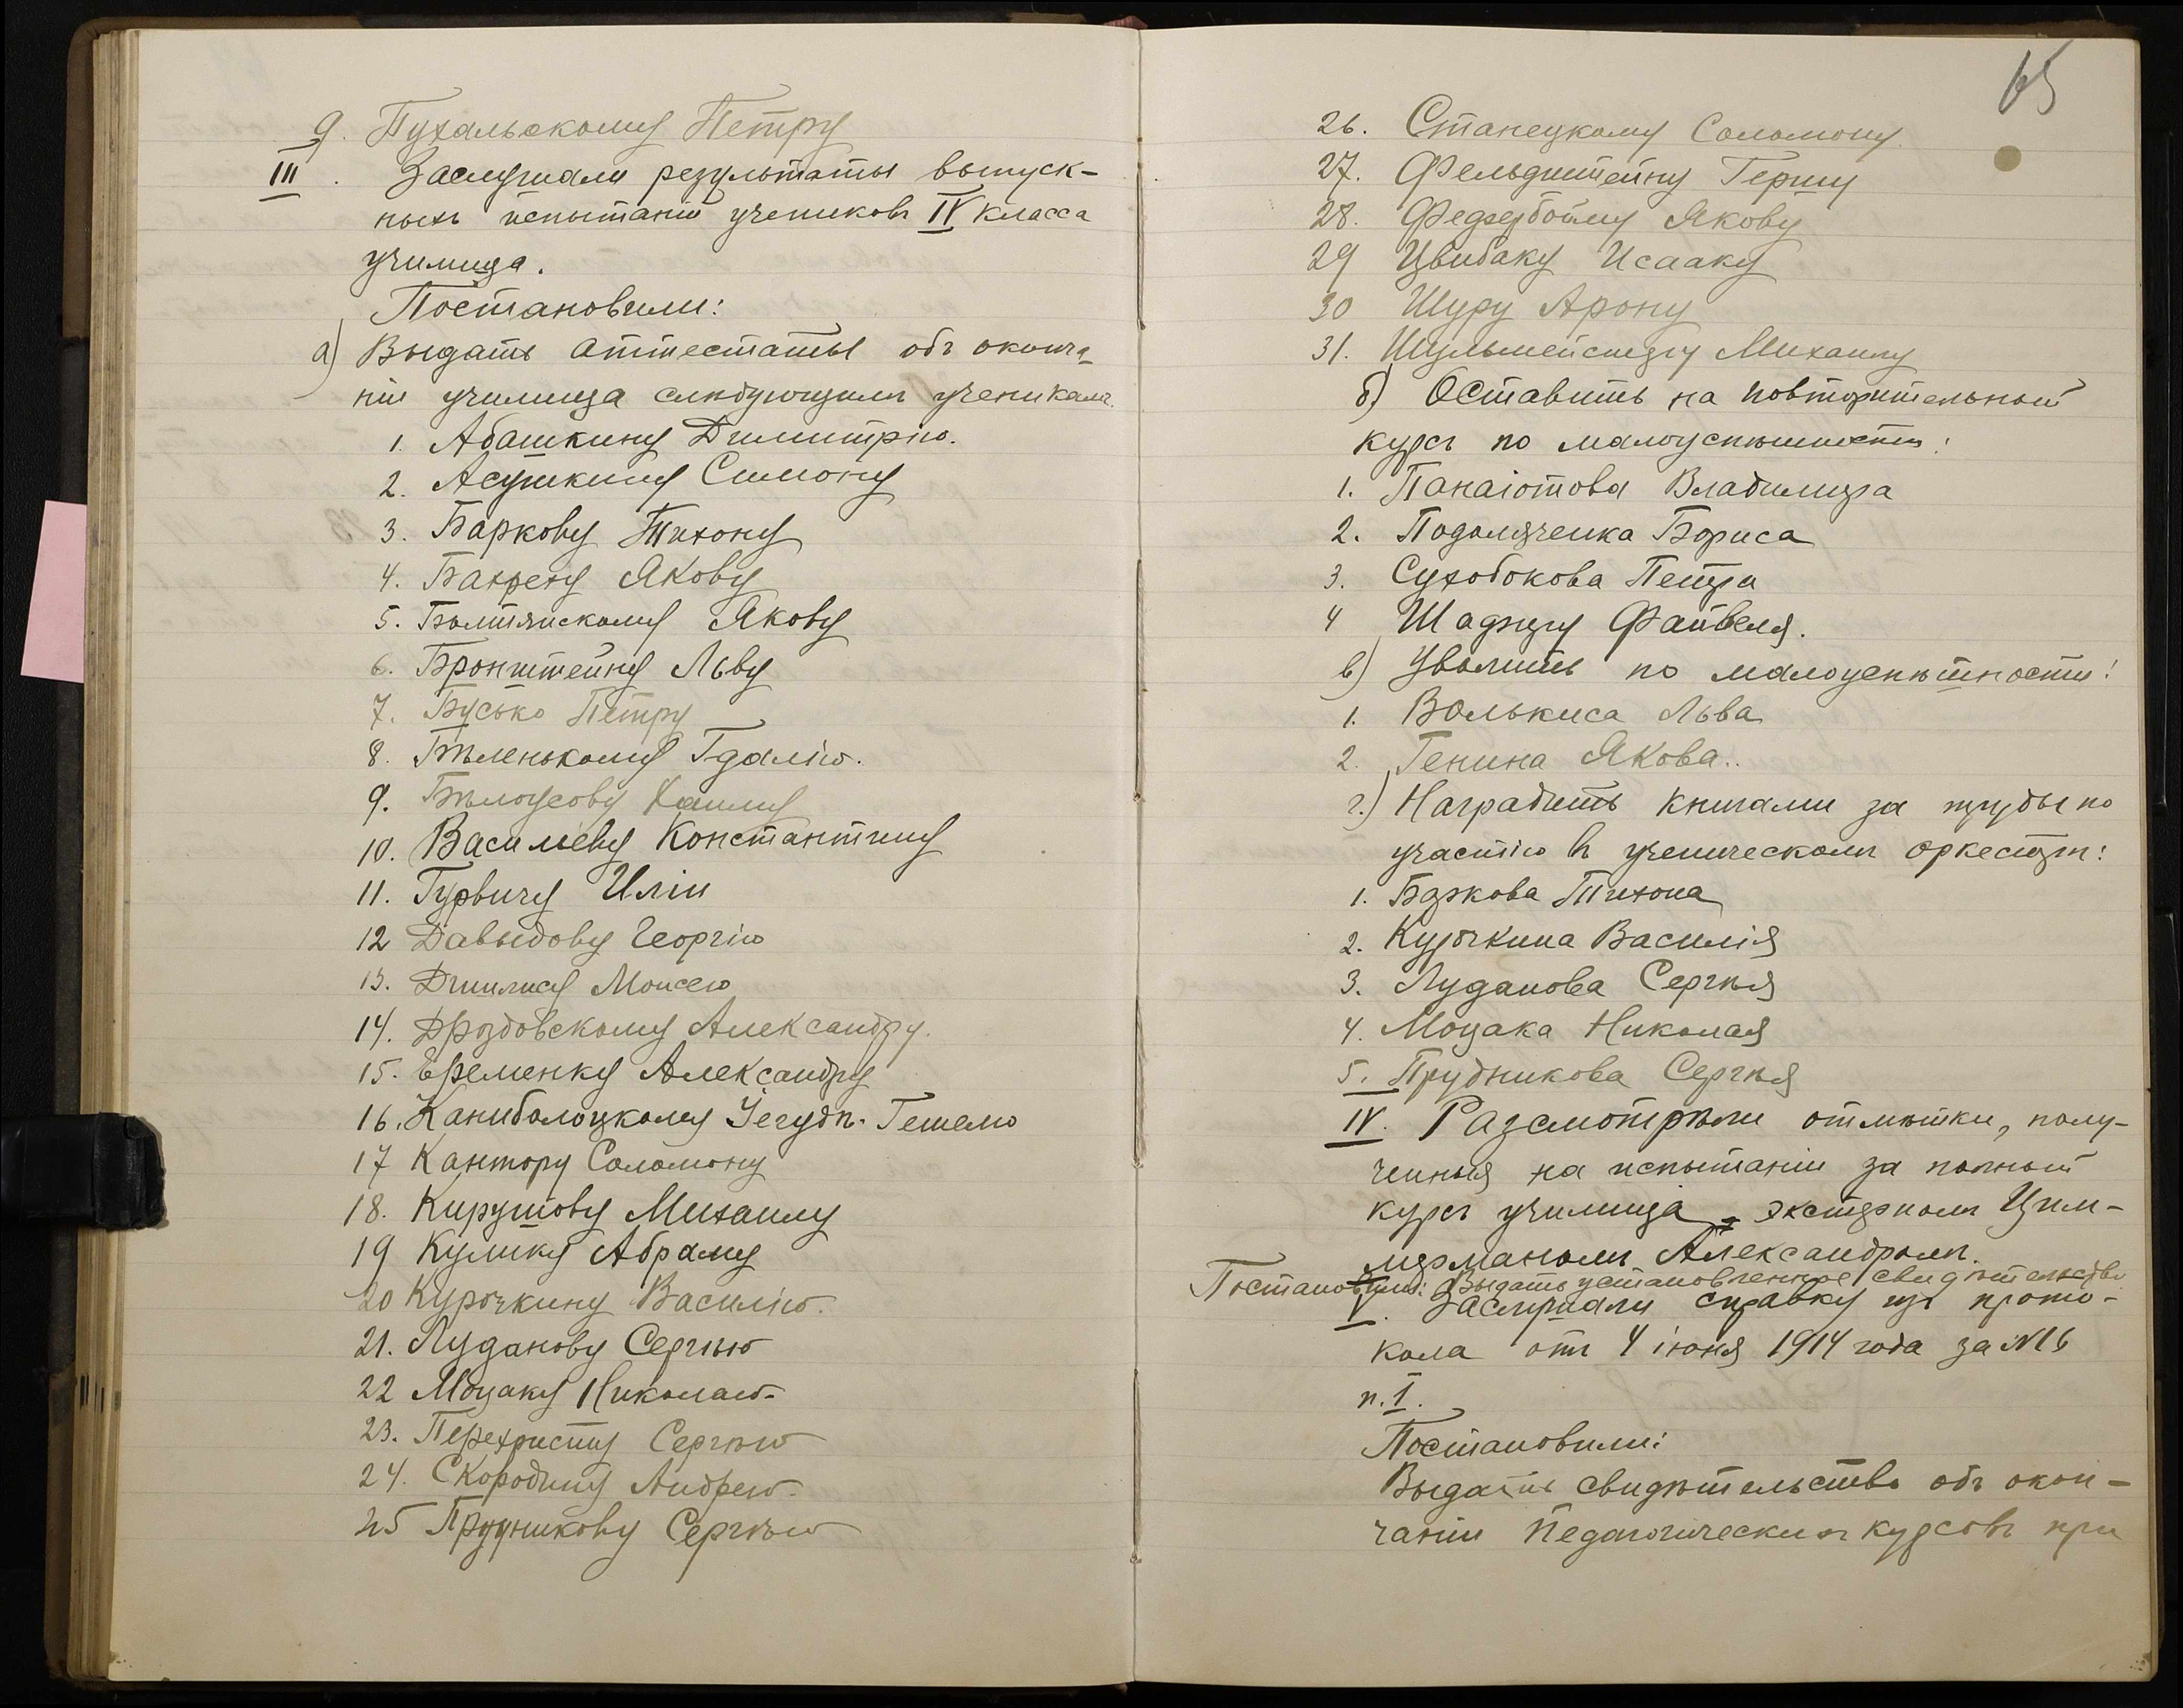 9. Пухальскому Петру
III. Заслушали результаты выпуск-
ныхъ испытаній учениковъ IV класса
училища.
Постановили:
а) Выдать аттестаты объ оконча-
ніи училища слѣдующимъ ученикамъ.
1. Абашкину Димитрію.
2. Асушкину Симону
3. Баркову Тихону
4. Бахреху Якову
5. Болтянскому Якову
6. Бронштейну Льву
7. Бусько Петру
8. Бѣленькому Гдалію.
9. Бѣлоусову
10. Васильеву Константину
11. Гурвичу Иліи
12 Давыдову Георгію
13. Моисею
14. Дроздовскому Александру.
15. Еременку Александру
16. Каниболоцкому Іегудѣ-Гешелю
17 Кантору Соломону
18. Кирушову Михаилу
19 Кулику Абраму
20 Курочкину Василію.
21. Луданову Сергѣю
22 Моцаку Николаю
23. Перехристу Сергѣю
24. Скородину Андрею
25 Прудникову Сергѣю
65
26. Станецкому Соломону.
27. Фельдштейну Гершу
28. Федербойму Якову
29 Цвибаку Исааку
30 Шуру Арону
31. Шульмейстеру Михаилу
б) Оставить на повторительный
курсъ по малоуспѣшности:
1. Панаіотова Владимира
2. Подоляченка Бориса
3. Сухобокова Петра
4 Шадхура Файвеля.
в) Уволить по малоуспѣшности:
1. Волькиса Льва
2. Генина Якова..
г.) Наградить книгами за труды по
участію въ ученическомъ оркестрѣ:
1. Баркова Тихона
2. Курочкина Василія
3. Луданова Сергѣя
4. Моцака Николая
5. Прудникова Сергѣя
IV. Разсмотрѣли отмѣтки, полу-
ченныя на испытаніи за полный
курсъ училища экстерномъ Цим-
мерманомъ Александромъ.
Постановили: Выдать установленное свидѣтельство
V. Заслушали справку изъ прото-
кола отъ 4 іюня 1914 года за №16
п. I.
Постановили:
Выдать свидѣтельство объ окон-
чаніи Педагогическихъ курсовъ при